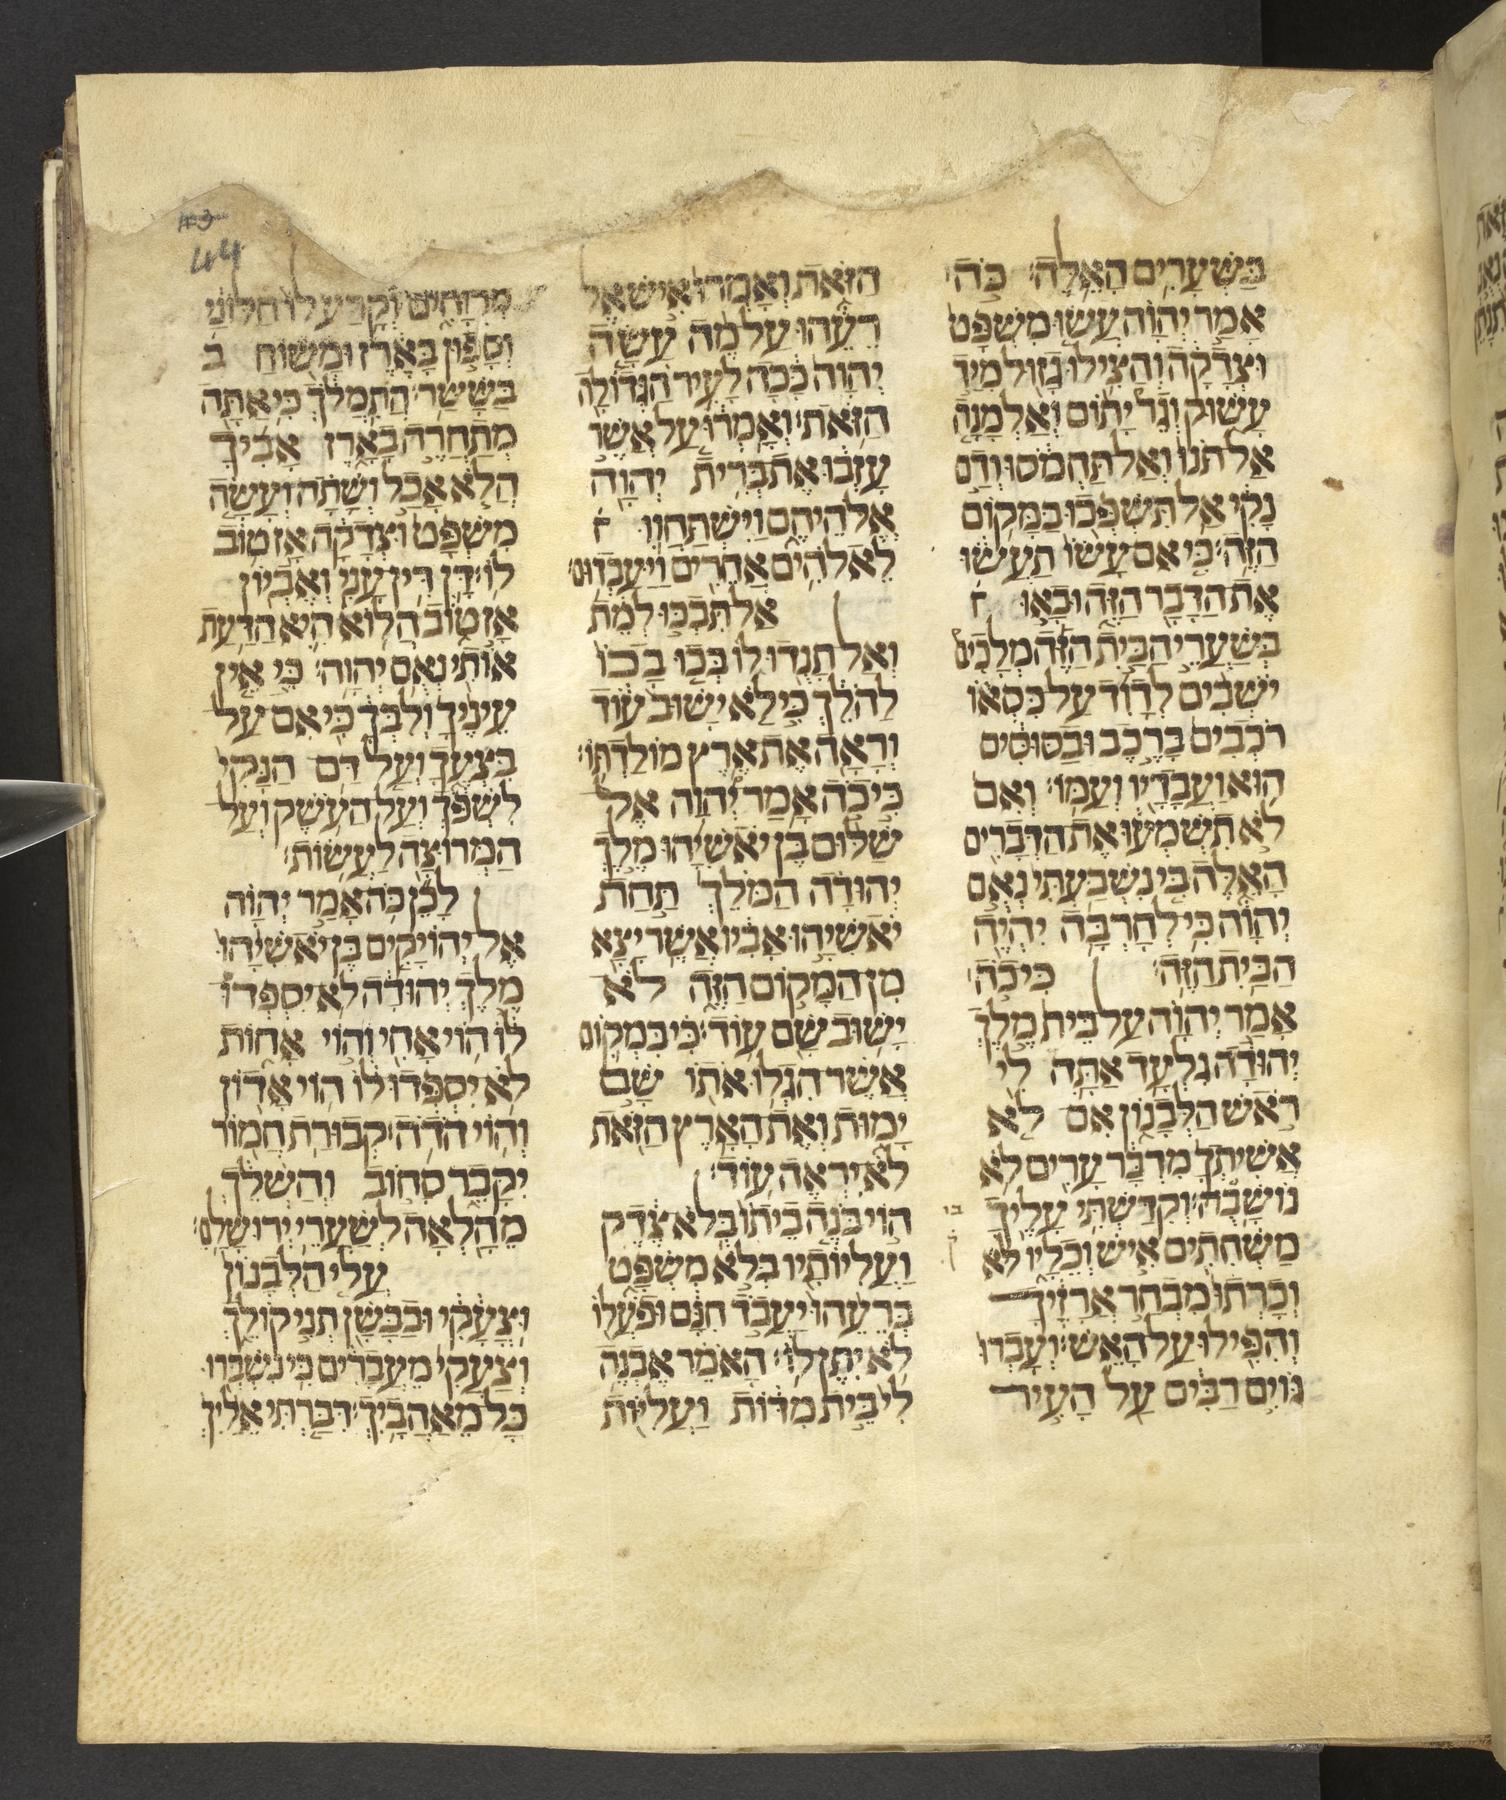 בשערים האלה׃ כה
אמר יהוה עשו משפט
וצדקה והצילו גזול מיד
עשוק וגר יתום ואלמנה
אל תנו ואל תחמסו ודם
נקי אל תשפכו במקום
הזה׃ כי אם עשו תעשו
את הדבר הזה ובאו
בשערי הבית הזה מלכים
ישבים לדוד על כסאו
רכבים ברכב ובסוסים
הוא ועבדיו ועמו׃ ואם
לא תשמעו את הדברים
האלה בי נשבעתי נאם
יהוה כי לחרבה יהיה
הבית הזה׃ כי כה
אמר יהוה על בית מלך
יהודה גלעד אתה לי
ראש הלבנון אם לא
אשיתך מדבר ערים לא
נושבה׃ וקדשתי עליך
משחתים איש וכליו
וכרתו מבחר ארזיך
והפילו על האש׃ ועברו
גוים רבים על העיר
הזאת ואמרו איש אל
רעהו על מה עשה
יהוה ככה לעיר הגדולה
הזאת׃ ואמרו על אשר
עזבו את ברית יהוה
אלהיהם וישתחוו
לאלהים אחרים ויעבדום׃
אל תבכו למת
ואל תנדו לו בכו בכו
להלך כי לא ישוב עוד
וראה את ארץ מולדתו׃
כי כה אמר יהוה אל
שלום בן יאשיהו מלך
יהודה המלך תחת
יאשיהו אביו אשר יצא
מן המקום הזה לא
ישוב שם עוד׃ כי במקום
אשר הגלו אתו שם
ימות ואת הארץ הזאת
לא יראה עוד׃
הוי בנה ביתו בלא צדק
ועליותיו בלא משפט
ברעהו יעבד חנם ופעלו
לא יתן לו׃ האמר אבנה
לי בית מדות ועליות
מרוחים וקרע לו חלוני
וספון בארז ומשוח ב
בששר׃ התמלך כי אתה
מתחרה בארז אביך
הלא אכל ושתה ועשה
משפט וצדקה אז טוב
לו׃ דן דין עני ואביון
אז טוב הלוא היא הדעת
אותי נאם יהוה׃ כי אין
עיניך ולבך כי אם על
בצעך ועל דם הנקי
לשפך ועל העשק ועל
המרוצה לעשות׃
לכן כה אמר יהוה
אל יהויקים בן יאשיהו
מלך יהודה לא יספדו
לו הוי אחי והוי אחות
לא יספדו לו הוי אדון
והוי הדה׃ קבורת חמור
יקבר סחוב והשלך
מהלאה לשערי ירושלם׃
עלי הלבנון
וצעקי ובבשן תני קולך
וצעקי מעברים כי נשברו
כל מאהביך׃ דברתי אליך
44